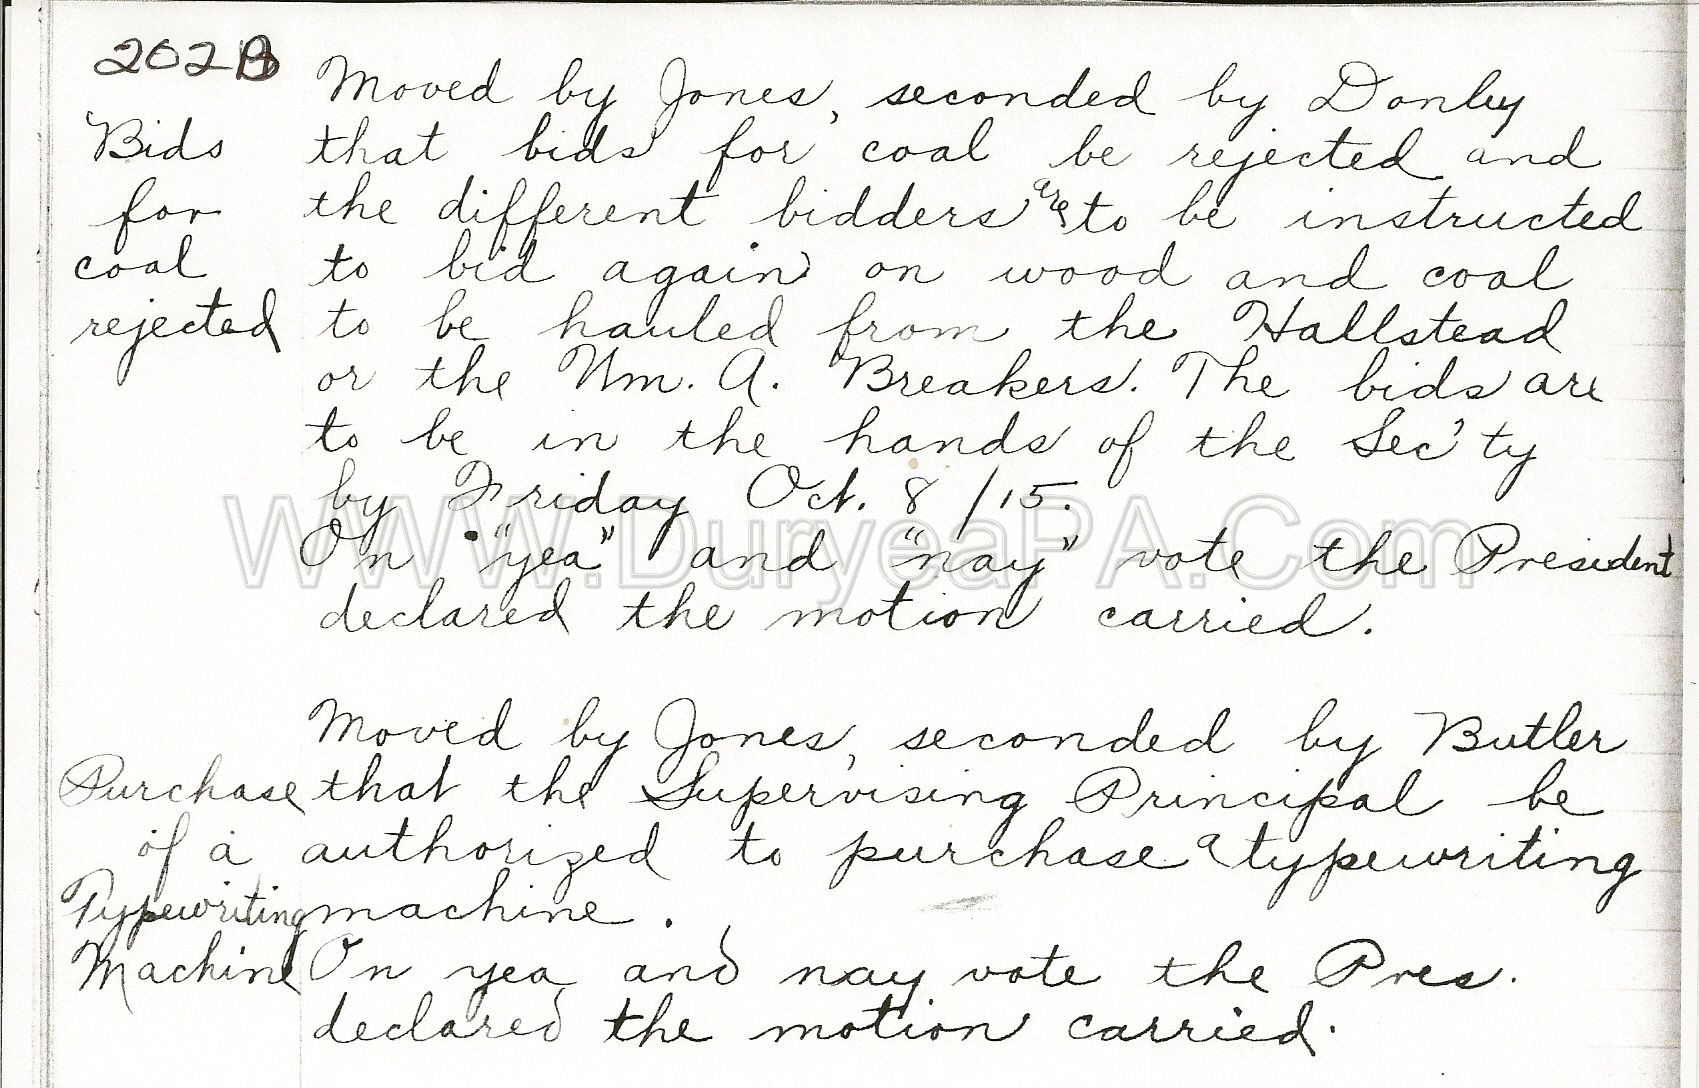 202B
Moved by Jones, seconded by Donley
Bids that bids for coal be rejected and
for the different bidders are to be instructed
coal to bid again on wood and coal
rejected to be hauled from the Hallstead
or the Wm. A. Breakers. The bids are
to be in the hands of the Sec'ty
by Friday Oct. 8 /15.
WWW.DuryeaPA.Com
On "yea" and "nay" vote the President
declared the motion carried.
Moved by Jones, seconded by Butler
Purchase that the Supervising Principal be
of a authorized to purchase a typewriting
Typewriting machine.
Machine On yea and nay vote the Pres.
declared the motion carried.